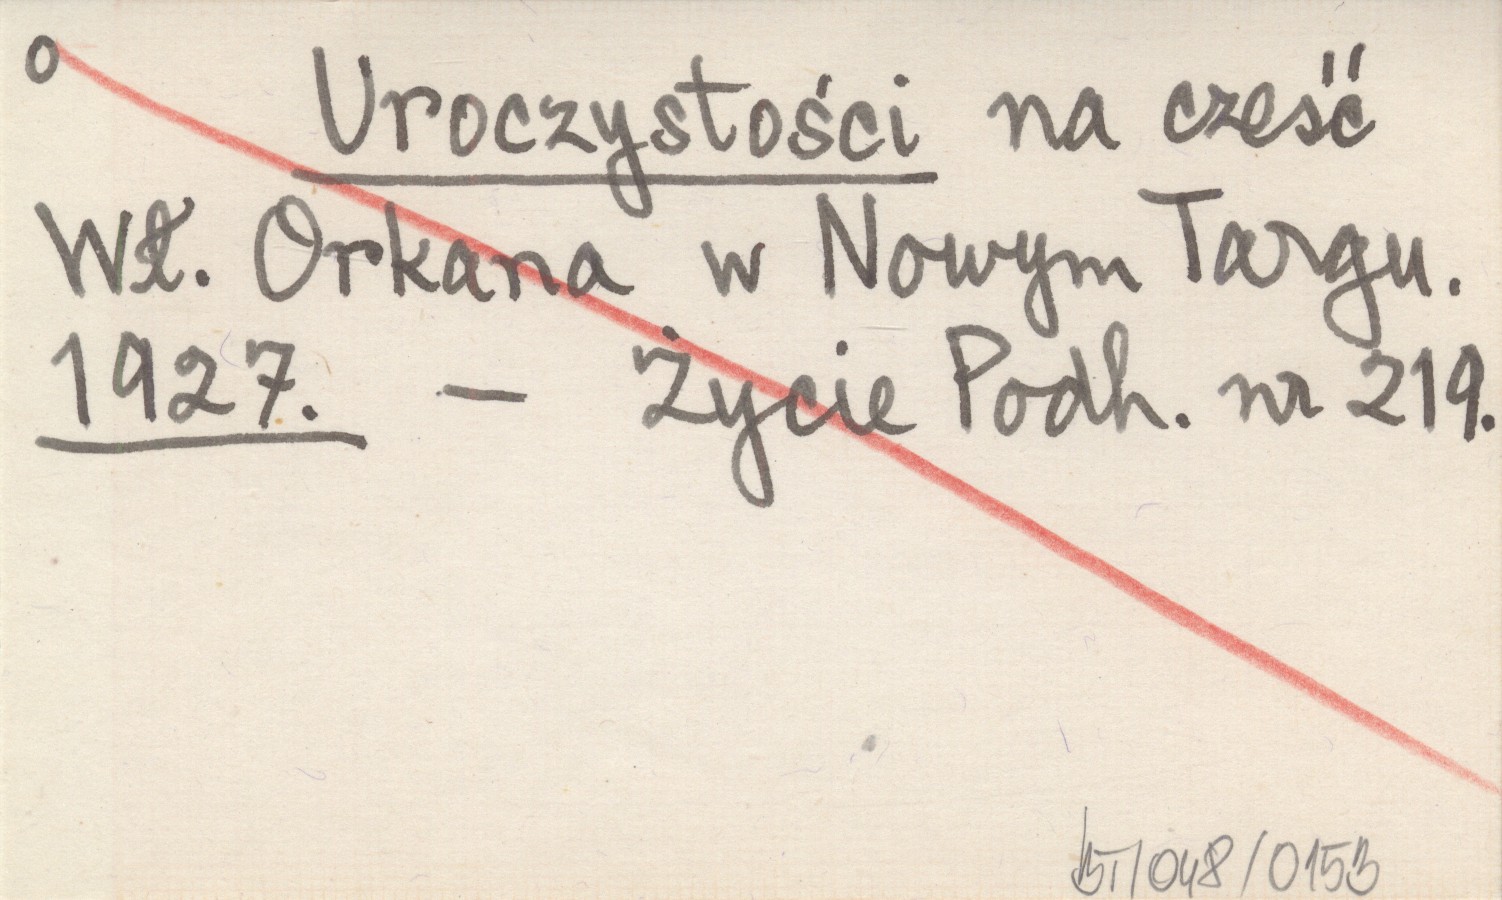 o Uroczystości na cześć
Wł. Orkana w Nowym Targu.
1927. — Życie Podh. nr 219.
BT/048/0153